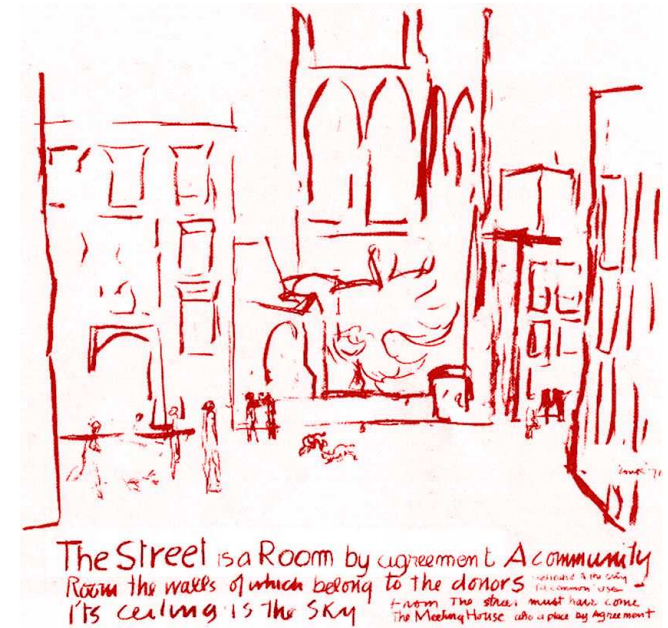 The Street is a Room by agreement A community
Room the walls of which belong to the donors
dedicated to the city
for common use
its ceiling is the sky
From The street must have come
The Meeting House also a place by Agreement